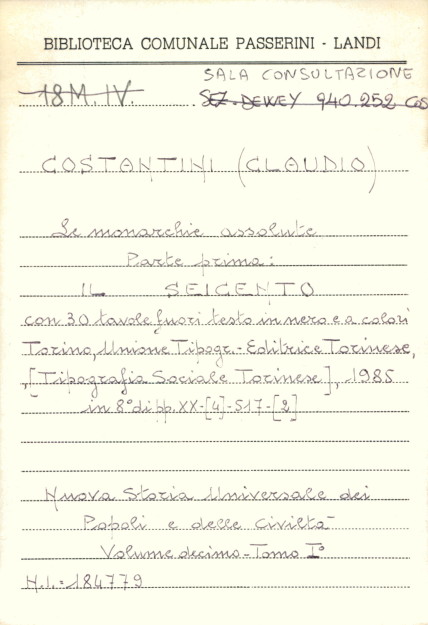 BIBLIOTECA COMUNALE PASSERINI - LANDI
SALA CONSULTAZIONE
18M.IV. SEZ. DEWEY 940.252 COS
COSTANTINI (CLAUDIO)
Le monarchie assolute
Parte prima:
IL SEICENTO
con 30 tavole fuori testo in nero e a colori
Torino, Unione Tipogr.-Editrice Torinese,
[Tipografia Sociale Torinese], 1985
in 8° di pp. XX-[4]-517-[2]
Nuova Storia Universale dei
Popoli e delle Civiltà
Volume decimo - Tomo I°
N.I.=184779